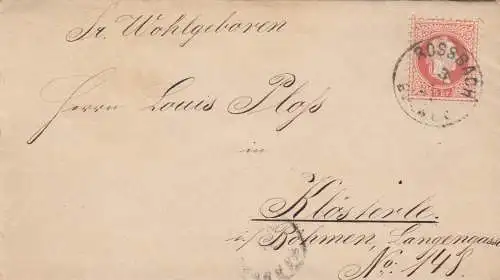 Sr. Wohlgeboren
ROSSBACH
3
5 kr
Herrn Louis Ploß
in
Klösterle.
i/ Böhmen, Langengasse
No: 148.